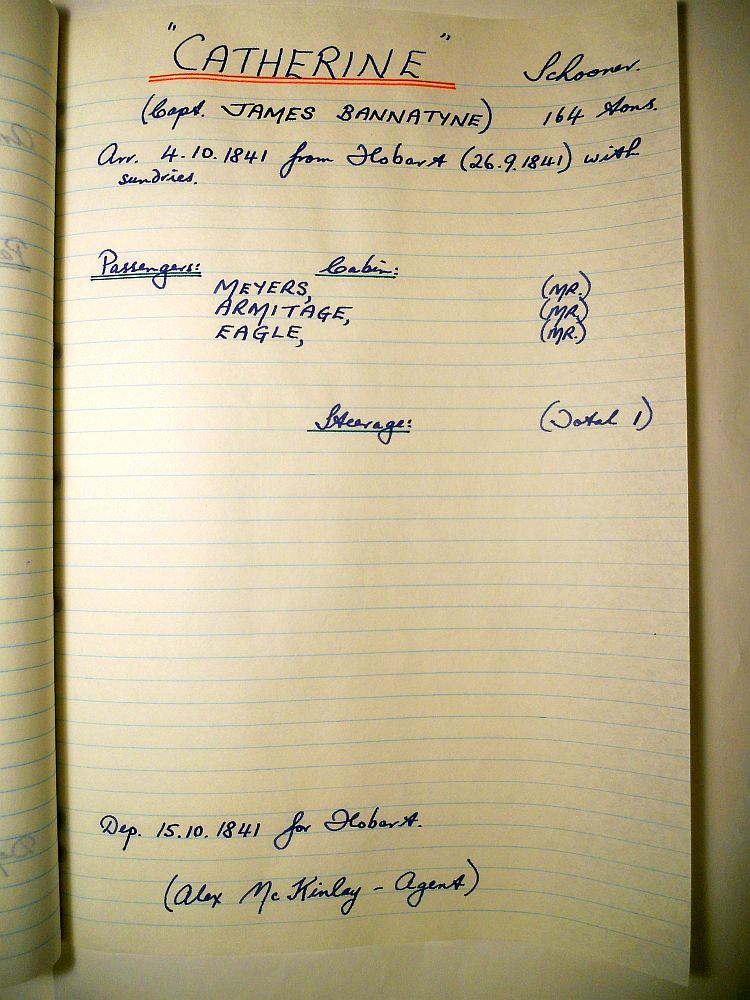 "CATHERINE" Schooner.
(Capt. JAMES BANNATYNE) 164 tons.
Arr. 4.10.1841 from Hobart (26.9.1841) with
sundries.
Passengers: Cabin:
MEYERS, (MR.)
ARMITAGE, (MR.)
EAGLE, (MR.)
Steerage: (Total 1)
Dep. 15.10.1841 for Hobart.
(Alex McKinlay - Agent)